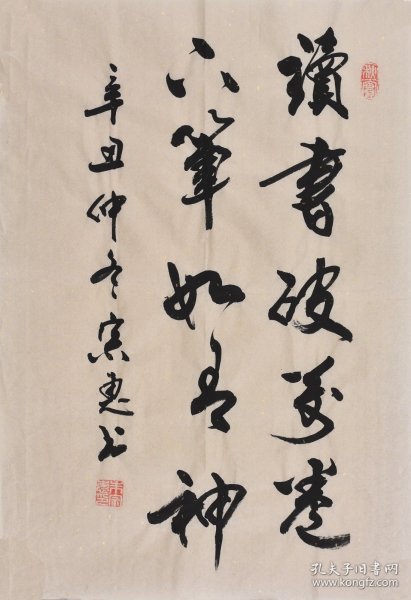 讀書破萬卷
下筆如有神
辛丑仲冬宗惠书
孔夫子旧书网
www.kongfz.com